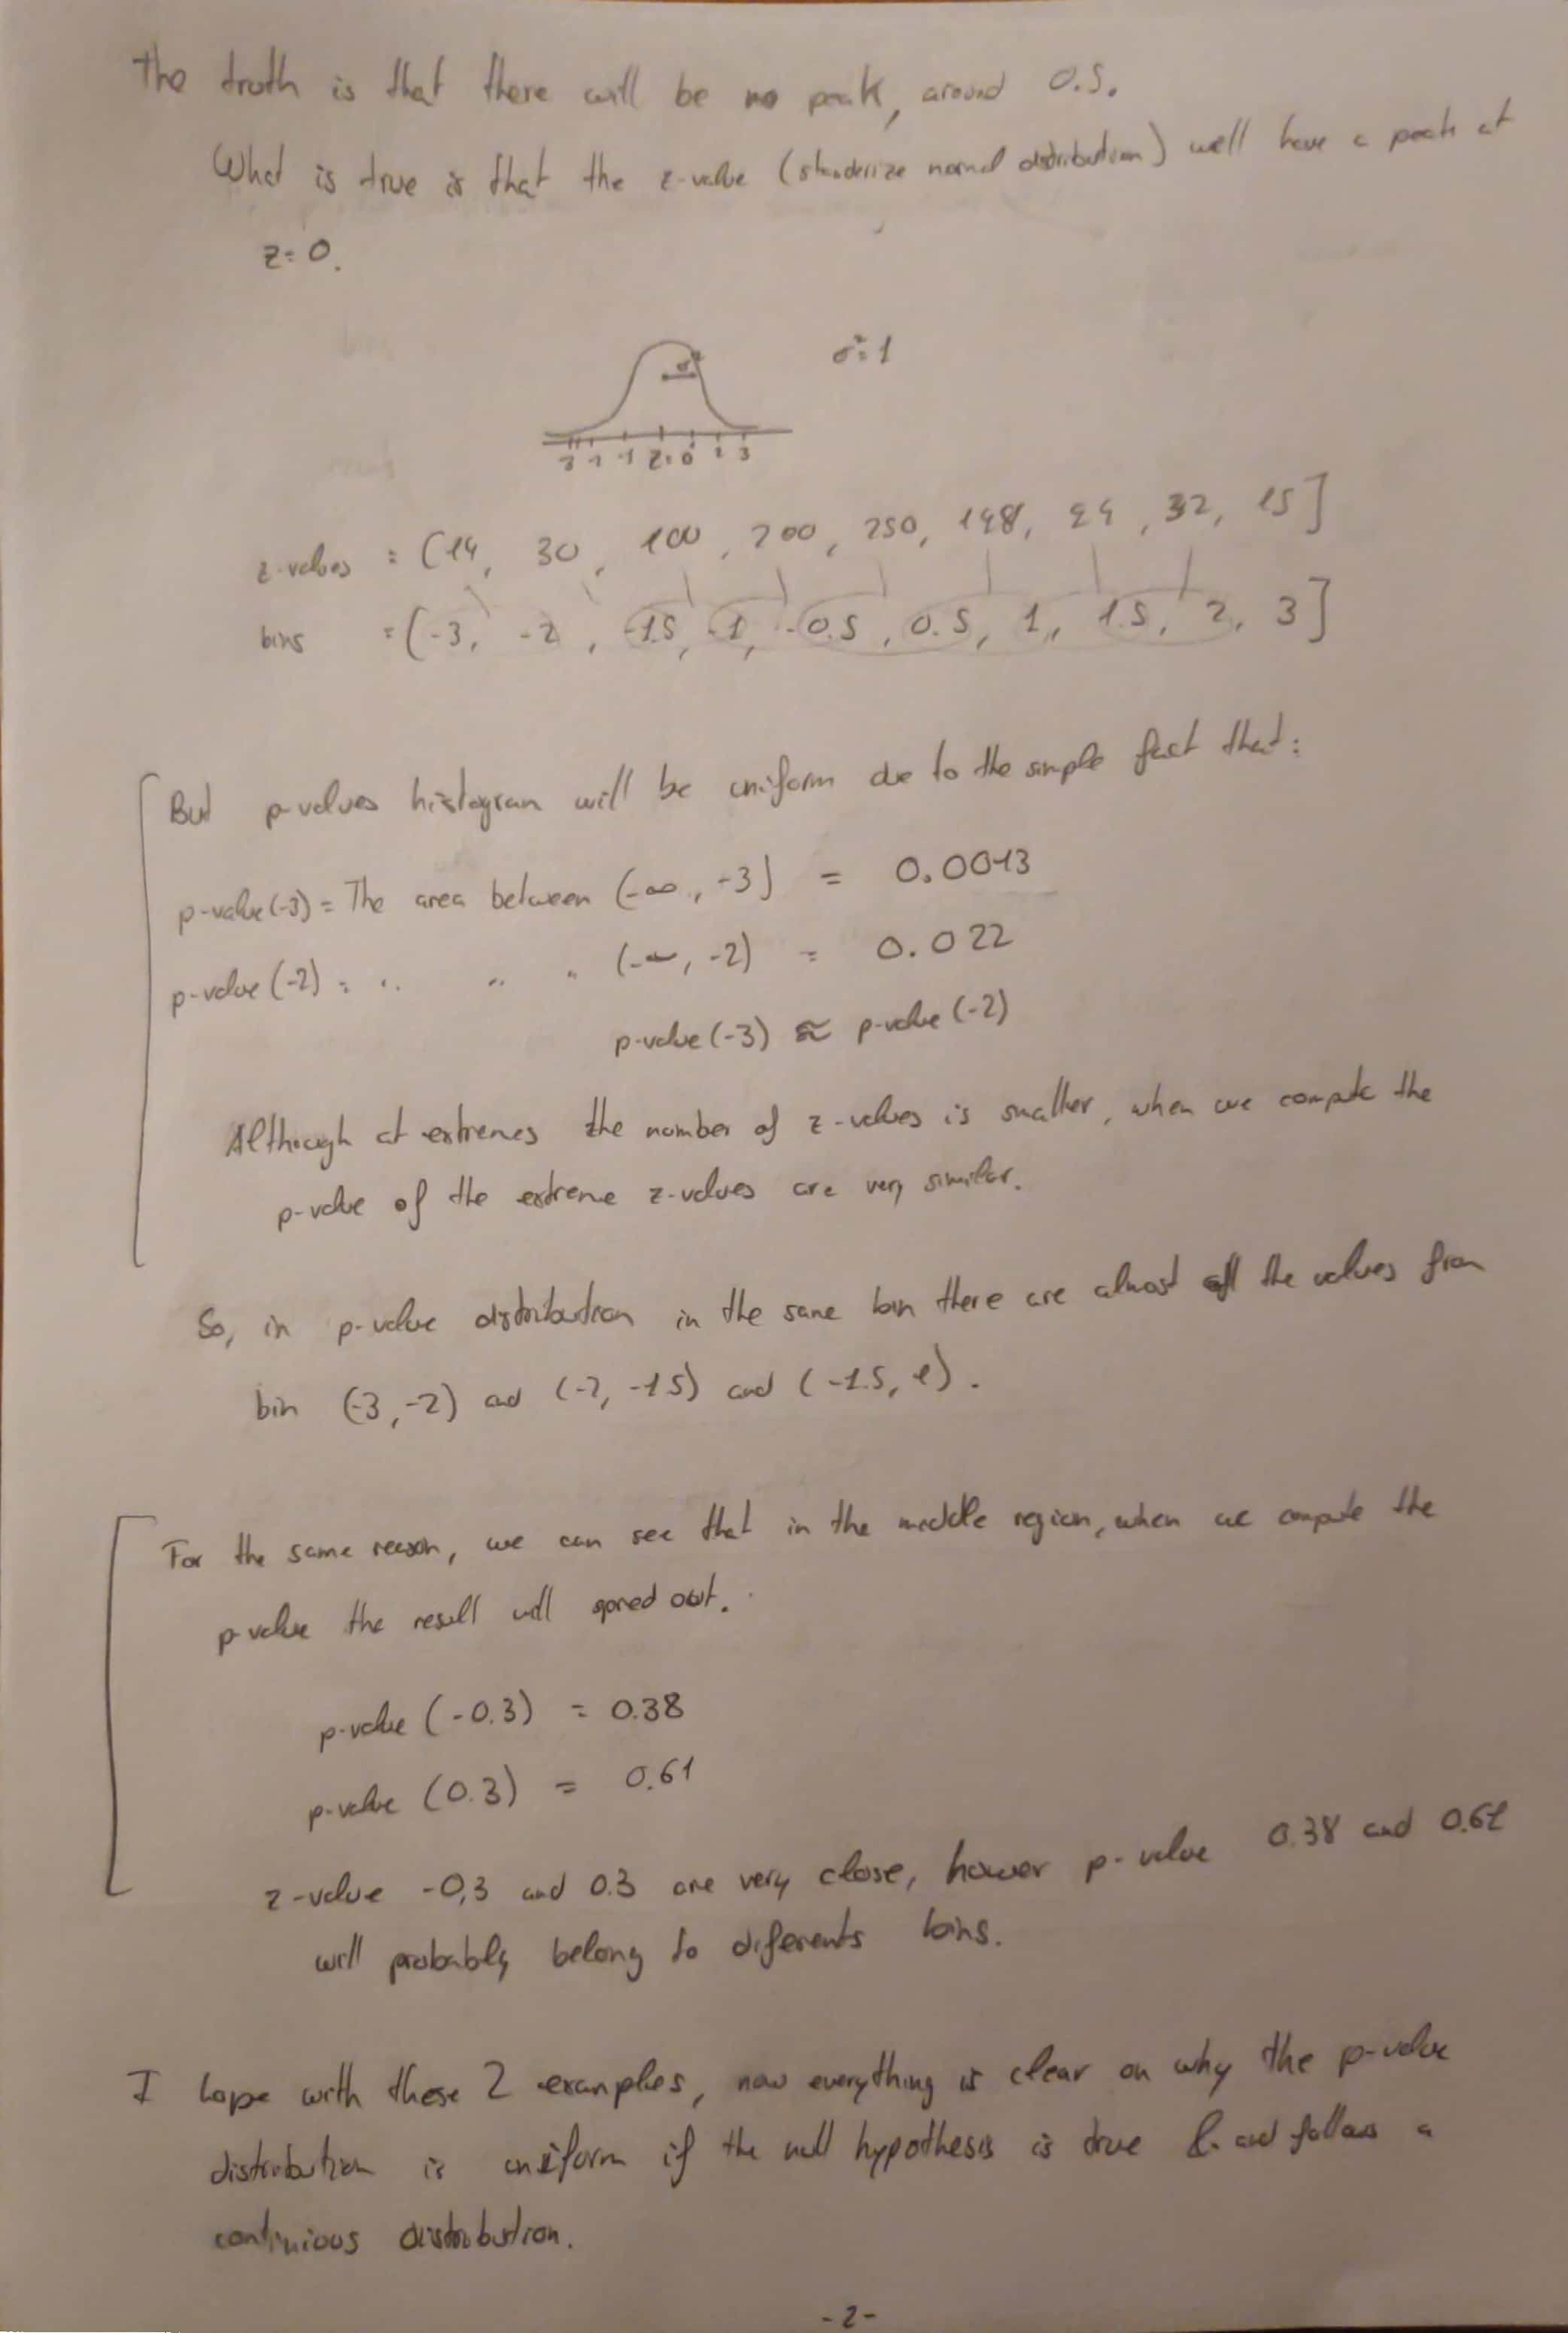 The truth is that there will be no peak, around 0.5.
What is true is that the z-value (standerize normal distribution) will have a peak at
z=0.
σ²=1
σ²
3 -2 -1 z=0 1 2 3
z-values = (14, 30, 100, 200, 250, 198, 94, 32, 15]
bins = (-3, -2, -1.5, -1, -0.5, 0.5, 1, 1.5, 2, 3]
But p-values histogram will be uniform due to the simple fact that:
p-value(-3) = The area between (-∞, -3) = 0.0013
p-value(-2) = .. .. .. (-∞, -2) = 0.022
p-value(-3) ≈ p-value(-2)
Although at extremes the number of z-values is smaller, when we compute the
p-value of the extreme z-values are very similar.
So, in p-value distribution in the same bin there are almost all the values from
bin (-3,-2) and (-2, -1.5) and (-1.5, 1).
For the same reason, we can see that in the middle region, when we compute the
p-value the result will spred out.
p-value (-0.3) = 0.38
p-value (0.3) = 0.61
z-value -0,3 and 0.3 are very close, hower p-value 0.38 and 0.61
will probably belong to diferents bins.
I hope with these 2 examples, now everything is clear on why the p-value
distribution is uniform if the null hypothesis is true & and follows a
continious distribution.
-2-